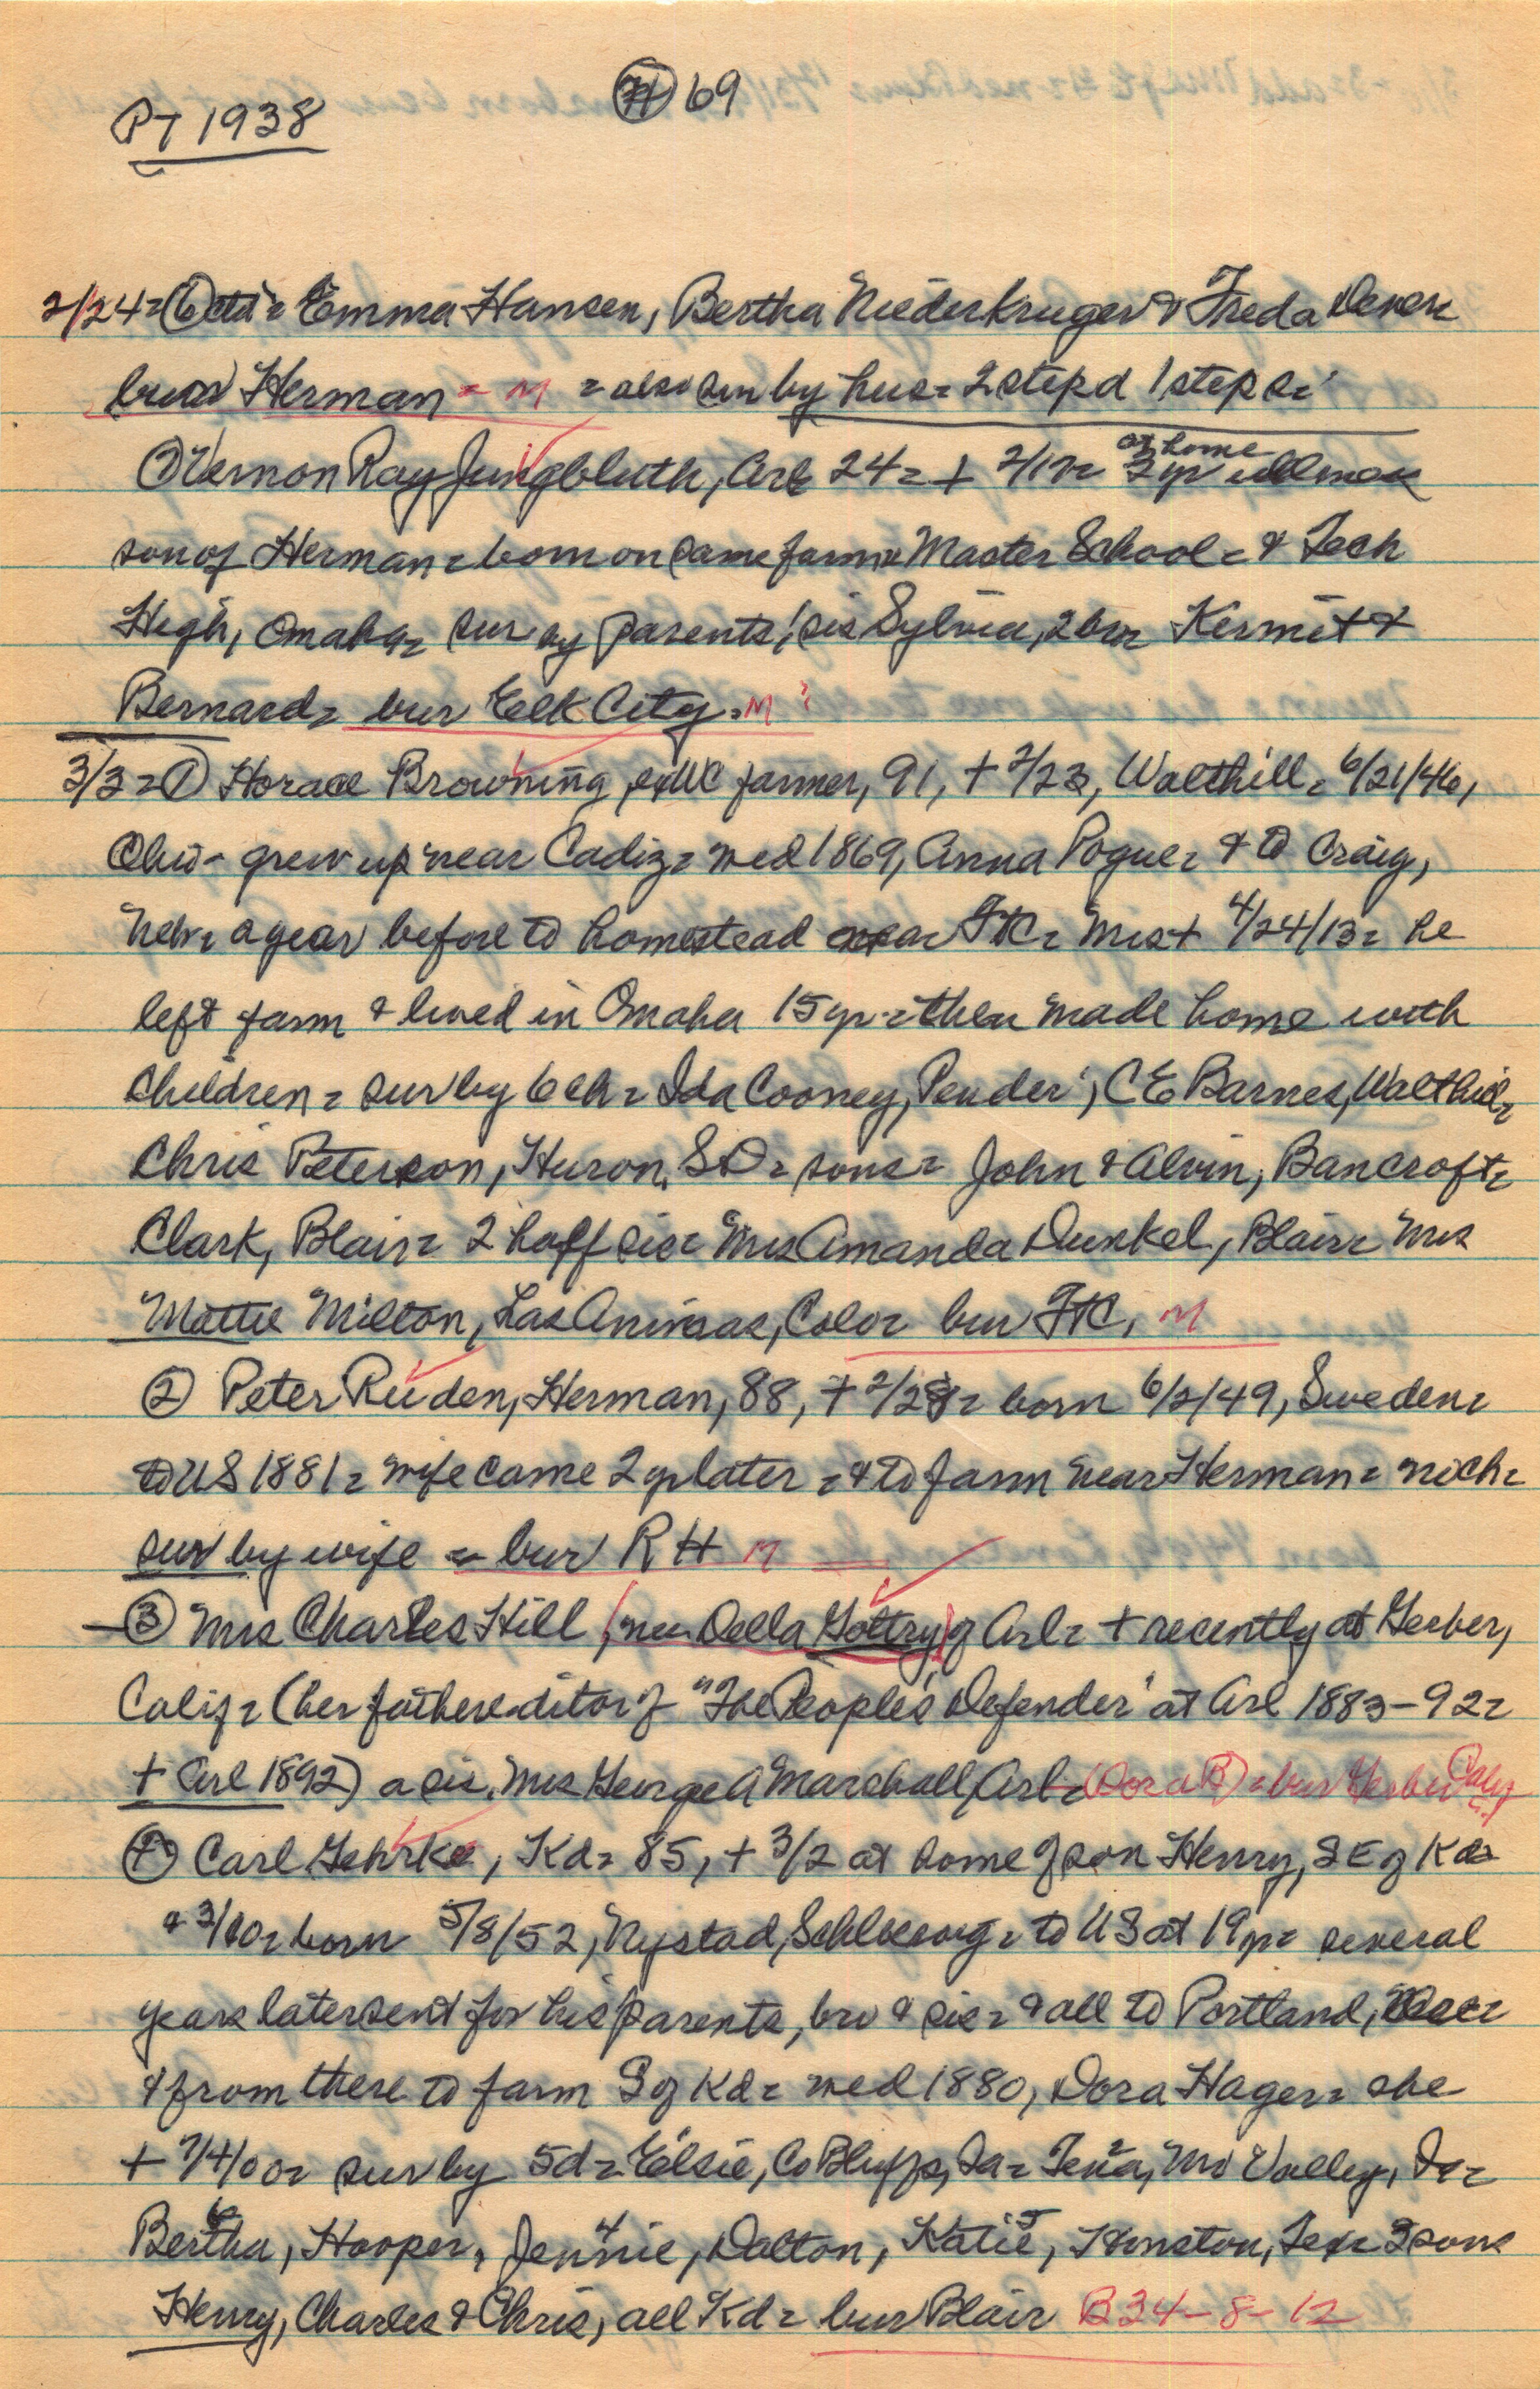 71 69
PT 1938
2/24 = 6 ctd = Emma Hansen, Bertha Niederkruger & Freda
bur Herman = M = also sur by hus = 2 step d 1 step s =
7 Vernon Ray Jungbluth, Arl 24 = + 2/17 = 2 yr ill
at home
son of Herman = born on same farm = Master School = & Tech
High, Omaha = sur by parents, 1 sis Sylvia, 2 bro Kermit &
Bernard = bur Elk City = M ?
3/3 = 1 Horace Browning, ex WC farmer, 91, + 2/23, Walthill = 6/21/46,
Ohio - grew up near Cadiz = med 1869, Anna Pogue = & to Craig,
Neb = a year before to homestead near FtC = Mrs + 4/24/13 = he
left farm & lived in Omaha 15 yr = then made home with
children = sur by 6 ch = Ida Cooney, Pender; C E Barnes, Walthill =
Chris Peterson, Huron, S D = sons = John & Alvin, Bancroft =
Clark, Blair = 2 half sis = Mrs Amanda Dunkel, Blair = Mrs
Mattie Milton, Las Animas, Colo = bur FtC, M
2 Peter Ruden, Herman, 88, + 2/28 = born 6/2/49, Sweden =
to US 1881 = wife came 2 yr later = & to farm near Herman = no ch =
sur by wife = bur R H M
3 Mrs Charles Hill, (nee Della Gottry) of Arl = + recently at Gerber,
Calif = (her father editor of "The People's Defender" at Arl 1883-92 =
+ Arl 1892) a sis, Mrs George A Marshall, Arl = (Dora B) = bur Gerber Calif
4 Carl Gehrke, Kd = 85, + 3/2 at home of son Henry, SE of Kd =
& 3/10 = born 5/8/52, Nystad, Schleswig = to US at 19 yr = several
years later sent for his parents, bro & sis = & all to Portland,
& from there to farm S of Kd = med 1880, Dora Hager = she
+ 7/4/00 = sur by 5 d = Elsie, Co Bluffs, Ia = Tena, Mo Valley, Ia =
Bertha, Hooper, Jennie, Dalton, Katie, Houston, Tex = 3 sons
Henry, Charles & Chris, all Kd = bur Blair B34-8-12